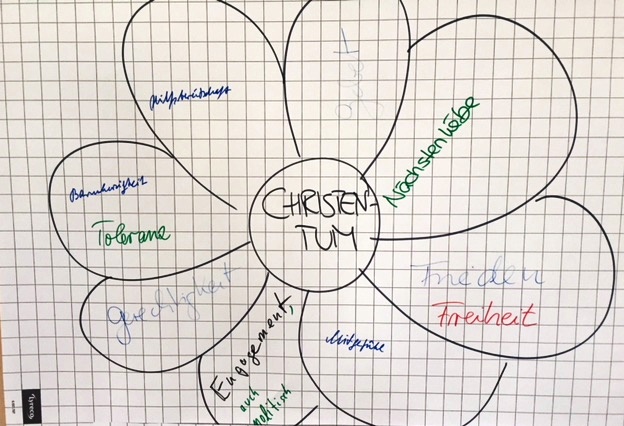 Hilfsbereitschaft
Nächstenliebe
Barmherzigkeit
Toleranz
CHRISTEN-
TUM
Frieden
Freiheit
Gerechtigkeit
Engagement,
auch
politisch
Mitgefühl